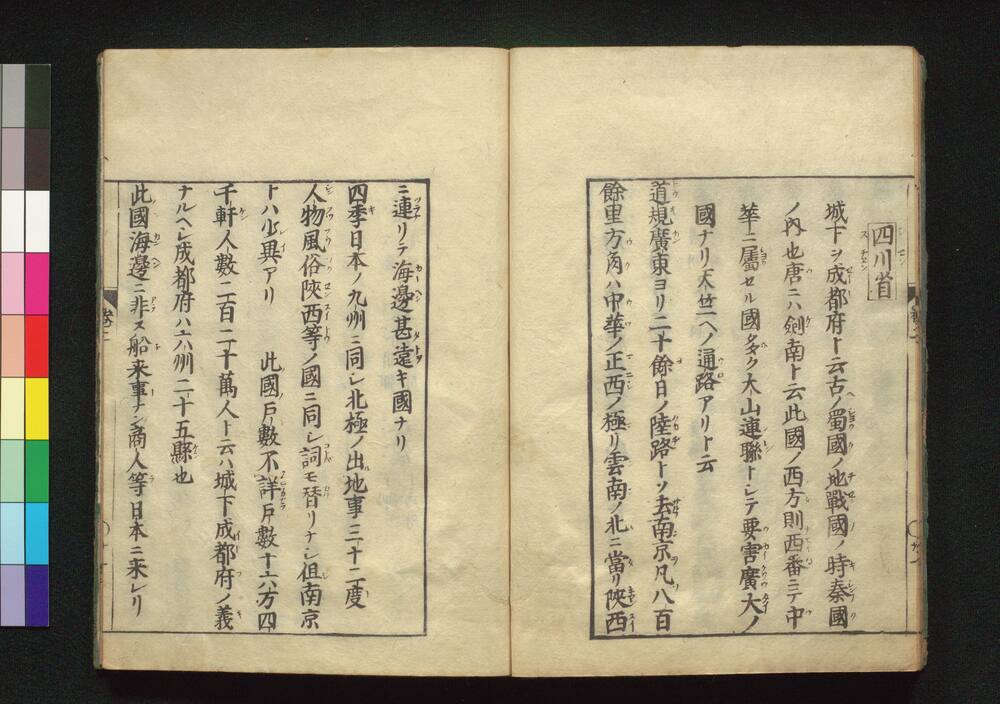 四川省
城下ヲ成都府ト云古ノ蜀國ノ地戰國ノ時秦國
ノ內也唐ニハ劍南ト云此國ノ西方則西番ニテ中
華ニ屬セル國多ク大山連聯トシテ要害廣大ノ
國ナリ天竺ヘノ通路アリト云
道規廣東ヨリ二十餘日ノ陸路トソ去南京凡八百
餘里方角ハ中華ノ正西ノ極リ雲南ノ北ニ當リ陝西
ニ連リテ海邊甚遠キ國ナリ
四季日本ノ九州ニ同シ北極ノ出地事三十二度
人物風俗陝西等ノ國ニ同シ詞モ替リナシ但南京
トハ少異アリ 此國戶數不詳戶數十六万四
千軒人數二百二十萬人ト云ハ城下成都府ノ義
ナルヘシ成都府ハ六州二十五縣也
此國海邊ニ非ス船来事ナシ商人等日本ニ来レリ